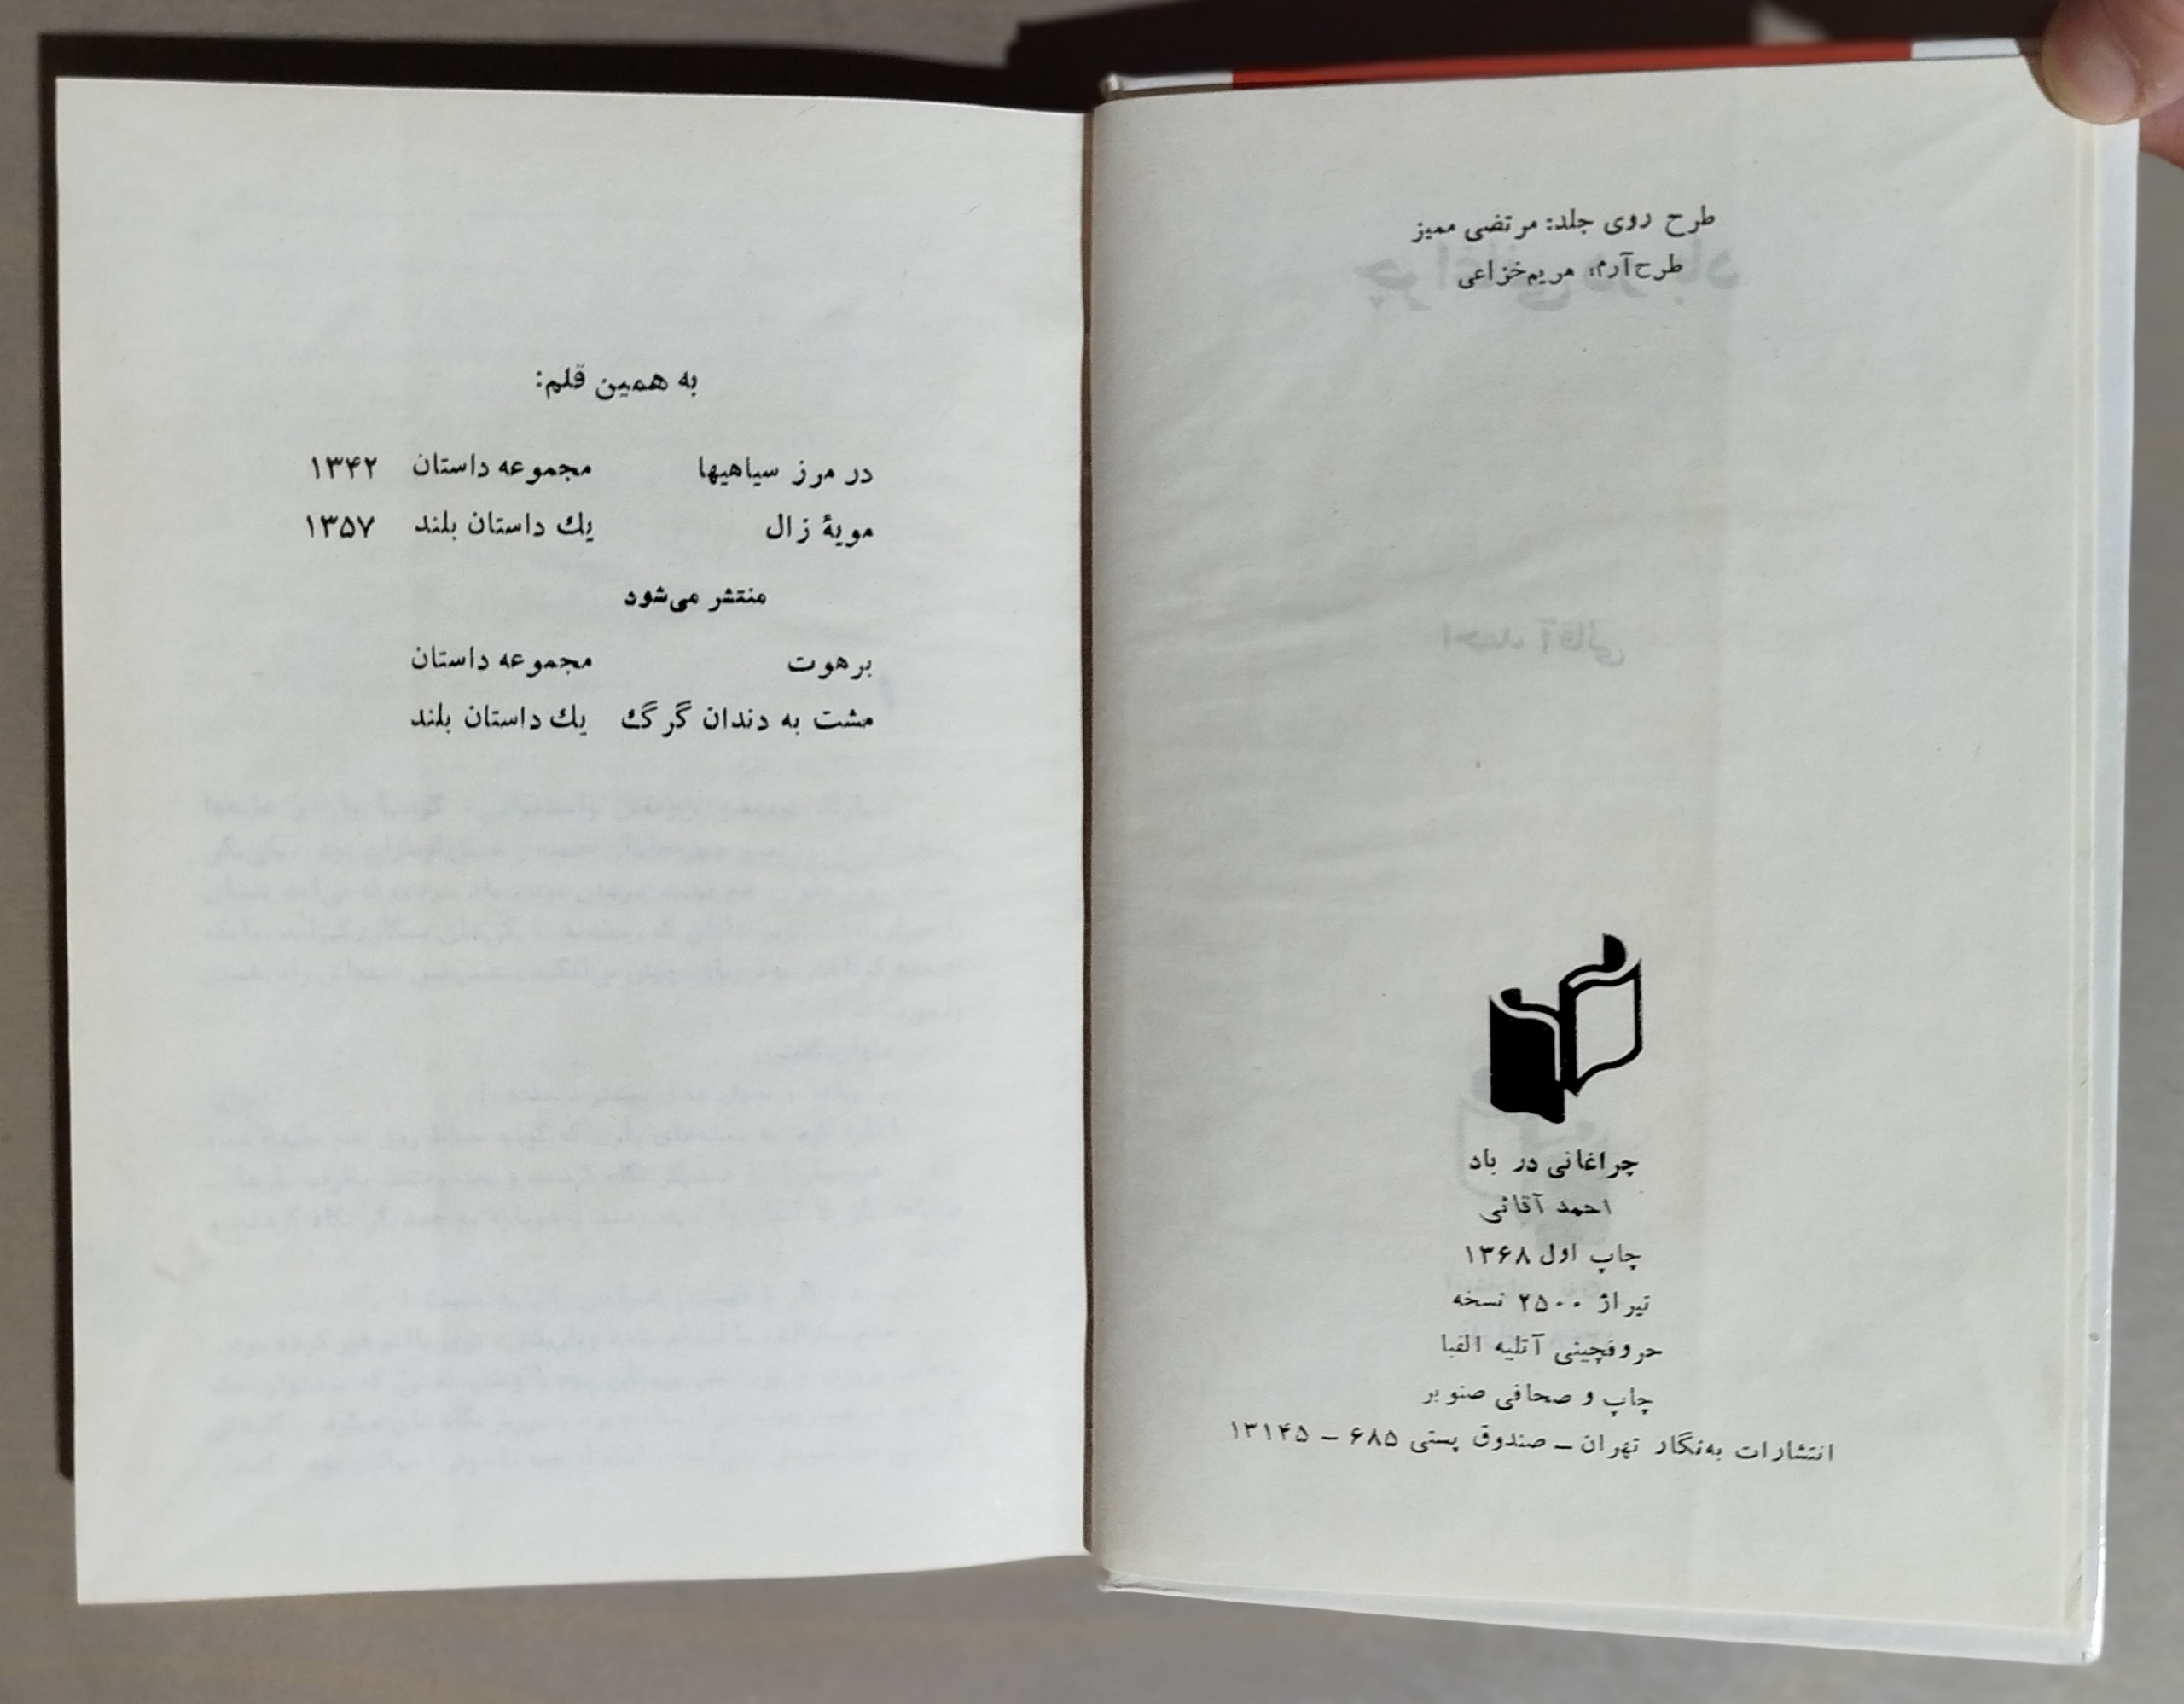 طرح روی جلد: مرتضی ممیز
طرح آرم: مریم خزاعی
چراغانی در باد
احمد آقائی
چاپ اول ۱۳۶۸
تیراژ ۲۵۰۰ نسخه
حروفچینی آتلیه الفبا
چاپ و صحافی صنوبر
انتشارات به‌نگار تهران ـ صندوق پستی ۶۸۵ ـ ۱۳۱۴۵
به همین قلم:
در مرز سیاهیها مجموعه داستان ۱۳۴۲
مویهٔ زال یك داستان بلند ۱۳۵۷
منتشر می‌شود
برهوت مجموعه داستان
مشت به دندان گرگ یك داستان بلند